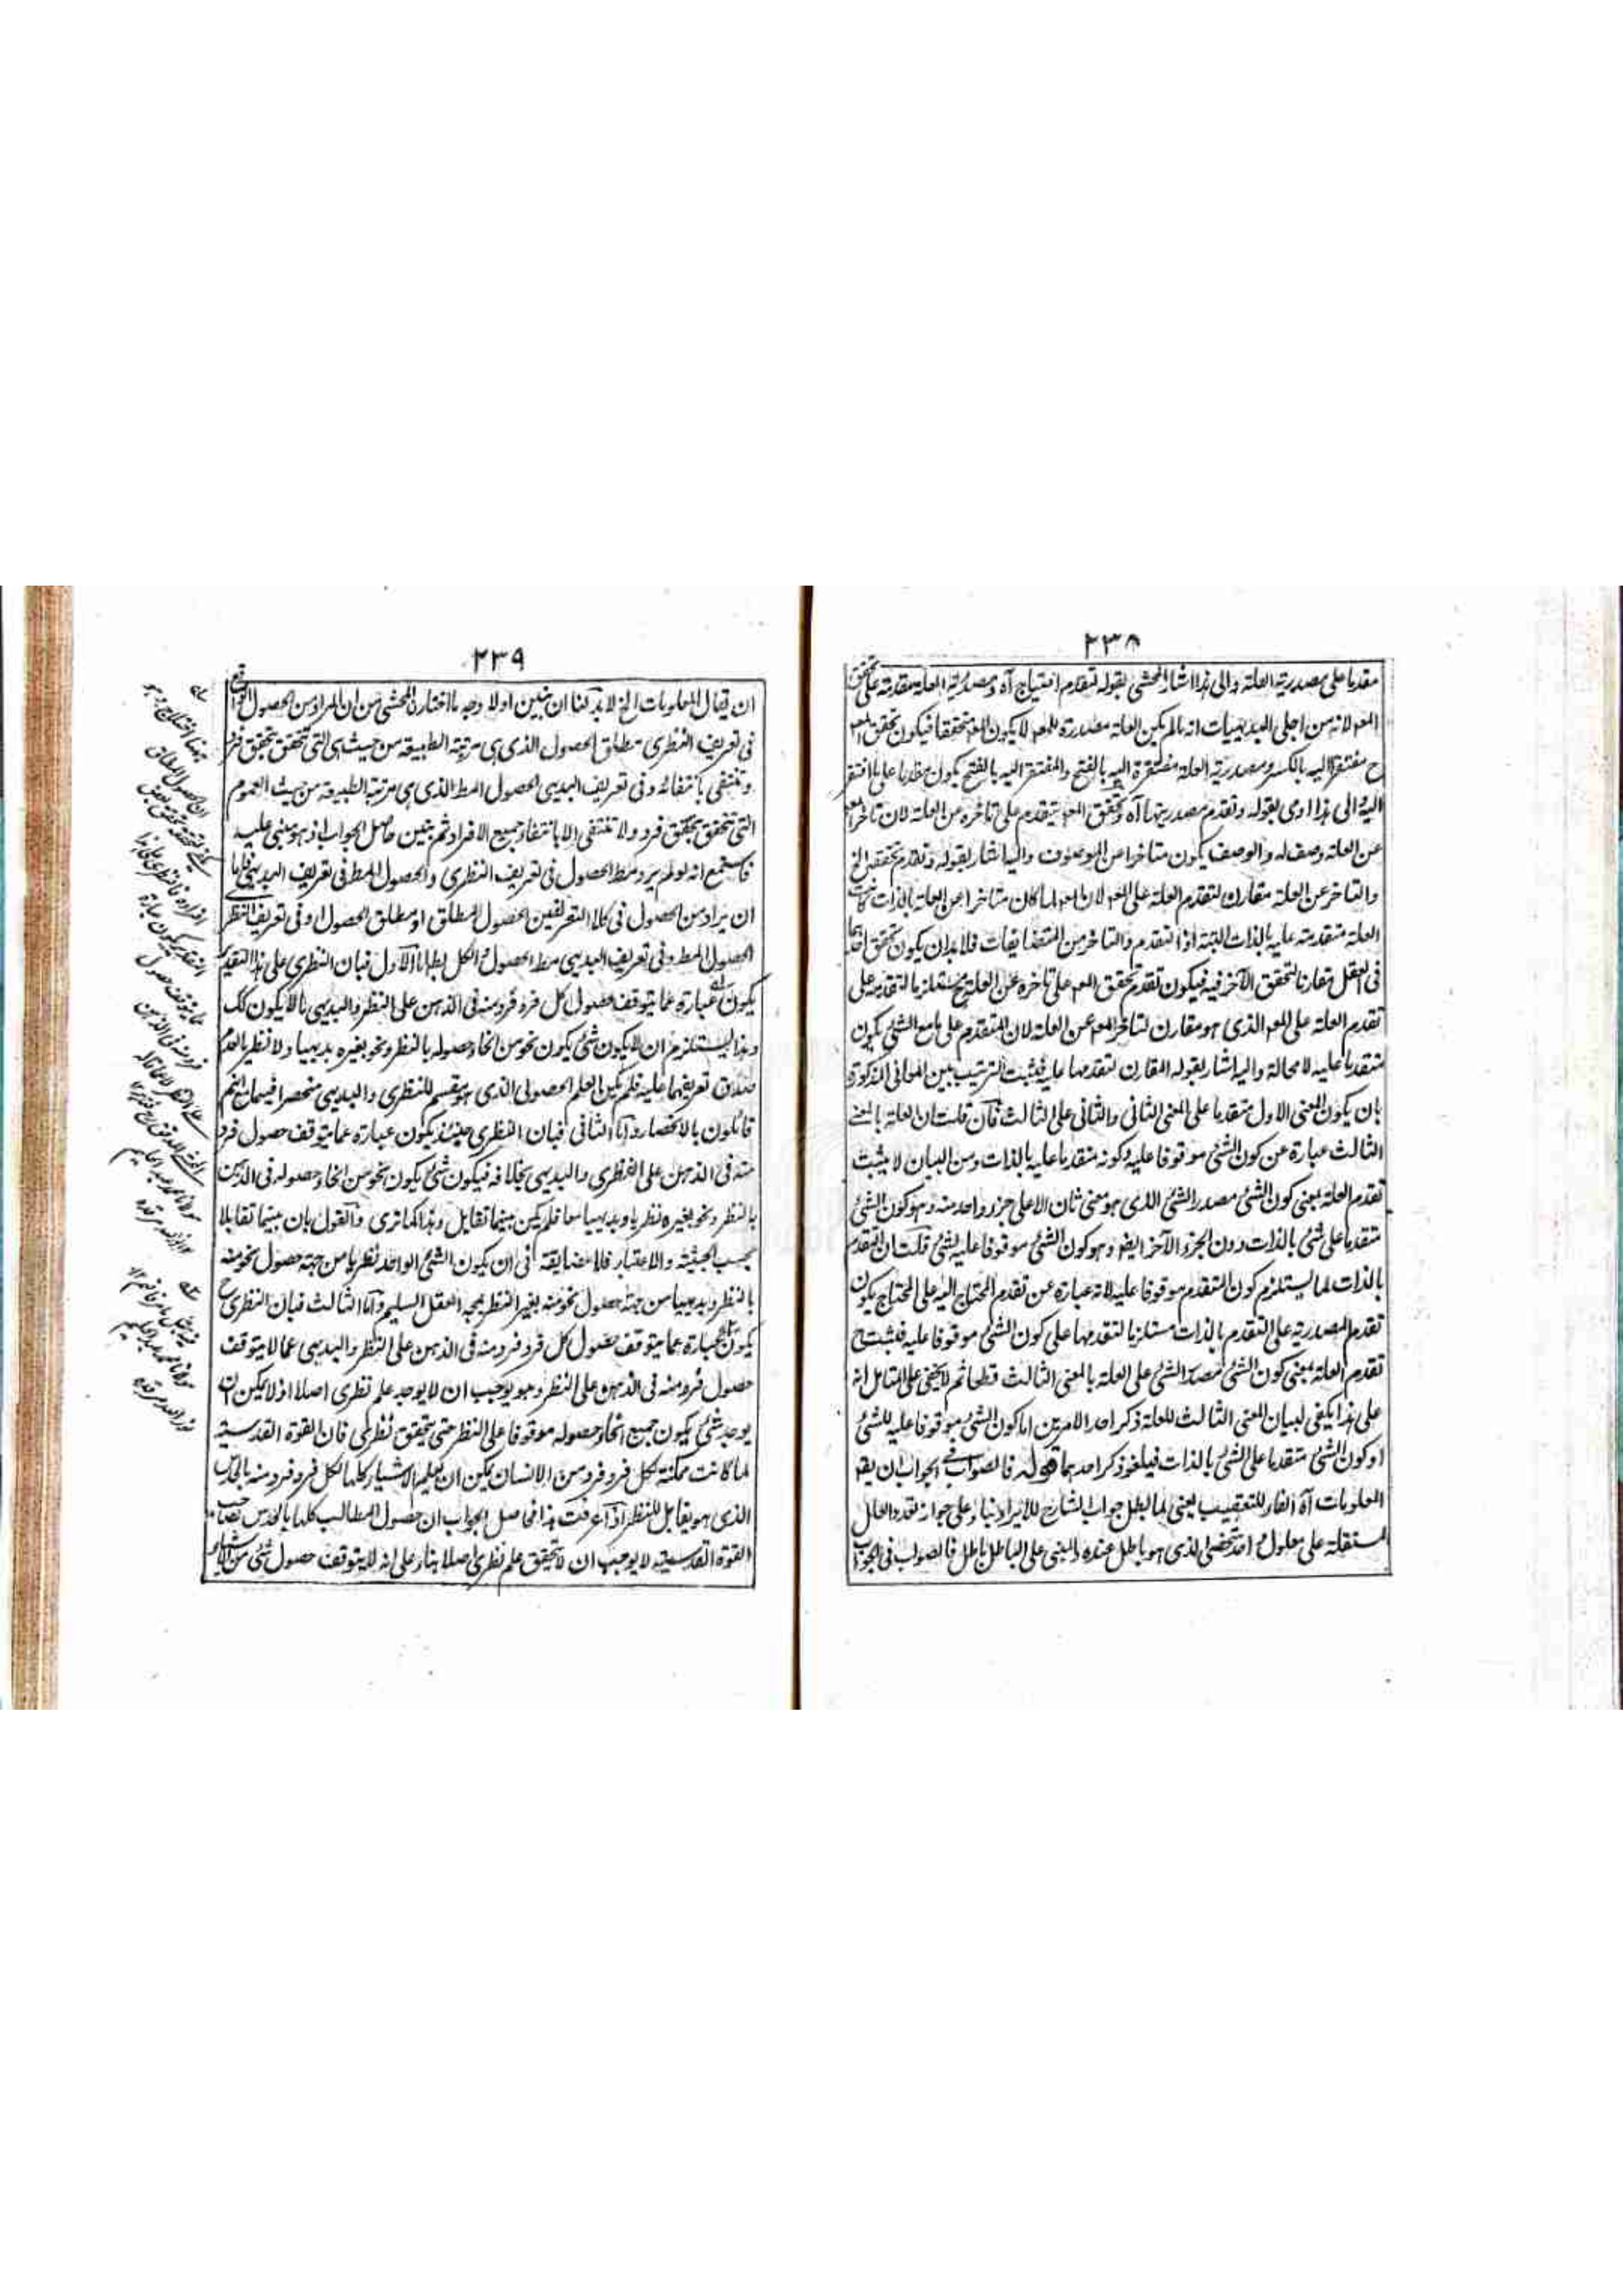 ٢٣٨
مقدما على مصدرية العلة والى هذا اشار المحشى بقوله فتقدم احتياج آه ومصدرية العلة مقدمة على تحقق
المعہ لانه من اجلى البديهيات انه ما لم يكن العلة مصدرة للمعہ لا يكون المعہ متحققا فيكون تحقق المعہ
ح مفتقرا اليه بالكسر ومصدرية العلة مفتقرة اليه بالفتح والمفتقر اليه بالفتح يكون مقدما على ما افتقر
اليه والى هذا اومى بقوله وتقدم مصدريتها آه وتحقق المعہ يتقدم على تاخره عن العلة لان تاخر المعہ
عن العلة وصف له والوصف يكون متاخرا عن الموصوف واليه اشار بقوله وتقدم تحققه الخ
والتاخر عن العلة مقارن لتقدم العلة على المعہ لان المعہ لما كان متاخرا عن العلة بالذات كانت
العلة متقدمة عليه بالذات البتة اذ التقدم والتاخر من المتضايفات فلا بد ان يكون تحقق احدهما
فى العقل مقارنا لتحقق الآخر فيه فيكون تقدم تحقق المعہ على تاخره عن العلة ح مستلزما لتقدمه على
تقدم العلة على المعہ الذى هو مقارن لتاخر المعہ عن العلة لان المتقدم على ما مع الشئ يكون
متقدما عليه لا محالة واليه اشار بقوله المقارن لتقدمها عليه فثبت الترتيب بين المعانى المذكورة
بان يكون المعنى الاول متقدما على المعنى الثانى والثانى على الثالث فان قلت ان العلة بالمعنى
الثالث عبارة عن كون الشئ موقوفا عليه وكونه متقدما عليه بالذات ومن البيان لا يثبت
تقدم العلة بمعنى كون الشئ مصدر الشئ الذى هو معنى ثان الا على جزء واحد منه وهو كون الشئ
متقدما على شئ بالذات دون الجزء الآخر ايضا وهو كون الشئ موقوفا عليه لشئ قلت ان التقدم
بالذات لما يستلزم كون المتقدم موقوفا عليه لانه عبارة عن تقدم المحتاج اليه على المحتاج يكون
تقدم المصدرية على التقدم بالذات مستلزما لتقدمها على كون الشئ موقوفا عليه فثبت ح
تقدم العلة بمعنى كون الشئ مصدر الشئ على العلة بالمعنى الثالث قطعا ثم لا يخفى على المتامل انه
على هذا يكفى لبيان المعنى الثالث للعلة ذكر احد الامرين اما كون الشئ موقوفا عليه للشئ
او كون الشئ متقدما على الشئ بالذات فيلغو ذكر احدهما قوله فالصواب فى الجواب ان يقہ
المعلومات آه الفاء للتعقيب يعنى لما بطل جواب الشارح للايراد بناء على جوازه تعدد العلل
المستقلة على معلول واحد شخصى الذى هو باطل عنده والمبنى على الباطل باطل فالصواب فى الجواب
٢٣٩
ان يقال المعلومات الخ لا بد لنا ان نبين اولا وجه ما اختاره المحشى من ان المراد من الحصول الواقع
فى تعريف النظرى مطلق الحصول الذى هى مرتبة الطبيعة من حيث هى التى تتحقق بتحقق فرد
وتنتفى بانتفائه وفى تعريف البديهى الحصول المط الذى هى مرتبة الطبيعة من حيث العموم
التى تتحقق بتحقق فرد ولا تنتفى الا بانتفاء جميع الافراد ثم نبين حاصل الجواب اذ هو مبنى عليه
فاستمع انه لو لم يرد مط الحصول فى تعريف النظرى والحصول المط فى تعريف البديهى فاما
ان يراد من الحصول فى كلا التعريفين الحصول المطلق او مطلق الحصول او فى تعريف النظرى
الحصول المط وفى تعريف البديهى مط الحصول والكل بط اما الاول فبان النظرى على هذا التقدير
يكون عبارة عما يتوقف حصول كل فرد فرد منه فى الذهن على النظر والبديهى ما لا يكون كك
وهذا يستلزم ان لا يكون شئ يكون نحو من انحاء حصوله بالنظر ونحو بغيره بديهيا ولا نظريا لعدم
صدق تعريفهما عليه فلم يكن العلم الحصولى الذى هو مقسم للنظرى والبديهى منحصرا فيهما مع انهم
قائلون بالانحصار واما الثانى فبان النظرى حينئذ يكون عبارة عما يتوقف حصول فرد
منه فى الذهن على النظرى والبديهى بخلافه فيكون شئ يكون نحو من انحاء حصوله فى الذهن
بالنظر ونحو بغيره نظريا وبديهيا معا فلم يكن بينهما تقابل وهذا كما ترى والقول بان بينهما تقابلا
بحسب الحيثية والاعتبار فلا مضايقة فى ان يكون الشئ الواحد نظريا من جهة حصول نحو منه
بالنظر وبديهيا من جهة حصول نحو منه بغير النظر يمجه العقل السليم واما الثالث فبان النظرى ح
يكون عبارة عما يتوقف حصول كل فرد فرد منه فى الذهن على النظر والبديهى عما لا يتوقف
حصول فرد منه فى الذهن على النظر وهو يوجب ان لا يوجد علم نظرى اصلا اذ لا يمكن ان
يوجد شئ يكون جميع انحاء حصوله موقوفا على النظر حتى يتحقق نظرى فان القوة القدسية
لما كانت ممكنة لكل فرد فرد من الانسان يمكن ان يعلم الاشياء كلها لكل فرد فرد منه بالحدس
الذى هو يقابل للنظر اذا عرفت هذا فحاصل الجواب ان حصول المطالب كلها بالحدس لصاحب
القوة القدسية لا يوجب ان لا يتحقق علم نظرى اصلا بناء على انه لا يتوقف حصول شئ من الاشياء
ان الحصول المطلق
افراده فالنظرى على هذا
التقدير يكون عبارة
عما يتوقف حصول
فرد منه فى الذهن
مولانا محمد عبد الحليم
نور الله مرقده
مولانا محمد عبد الحليم
نور الله مرقده